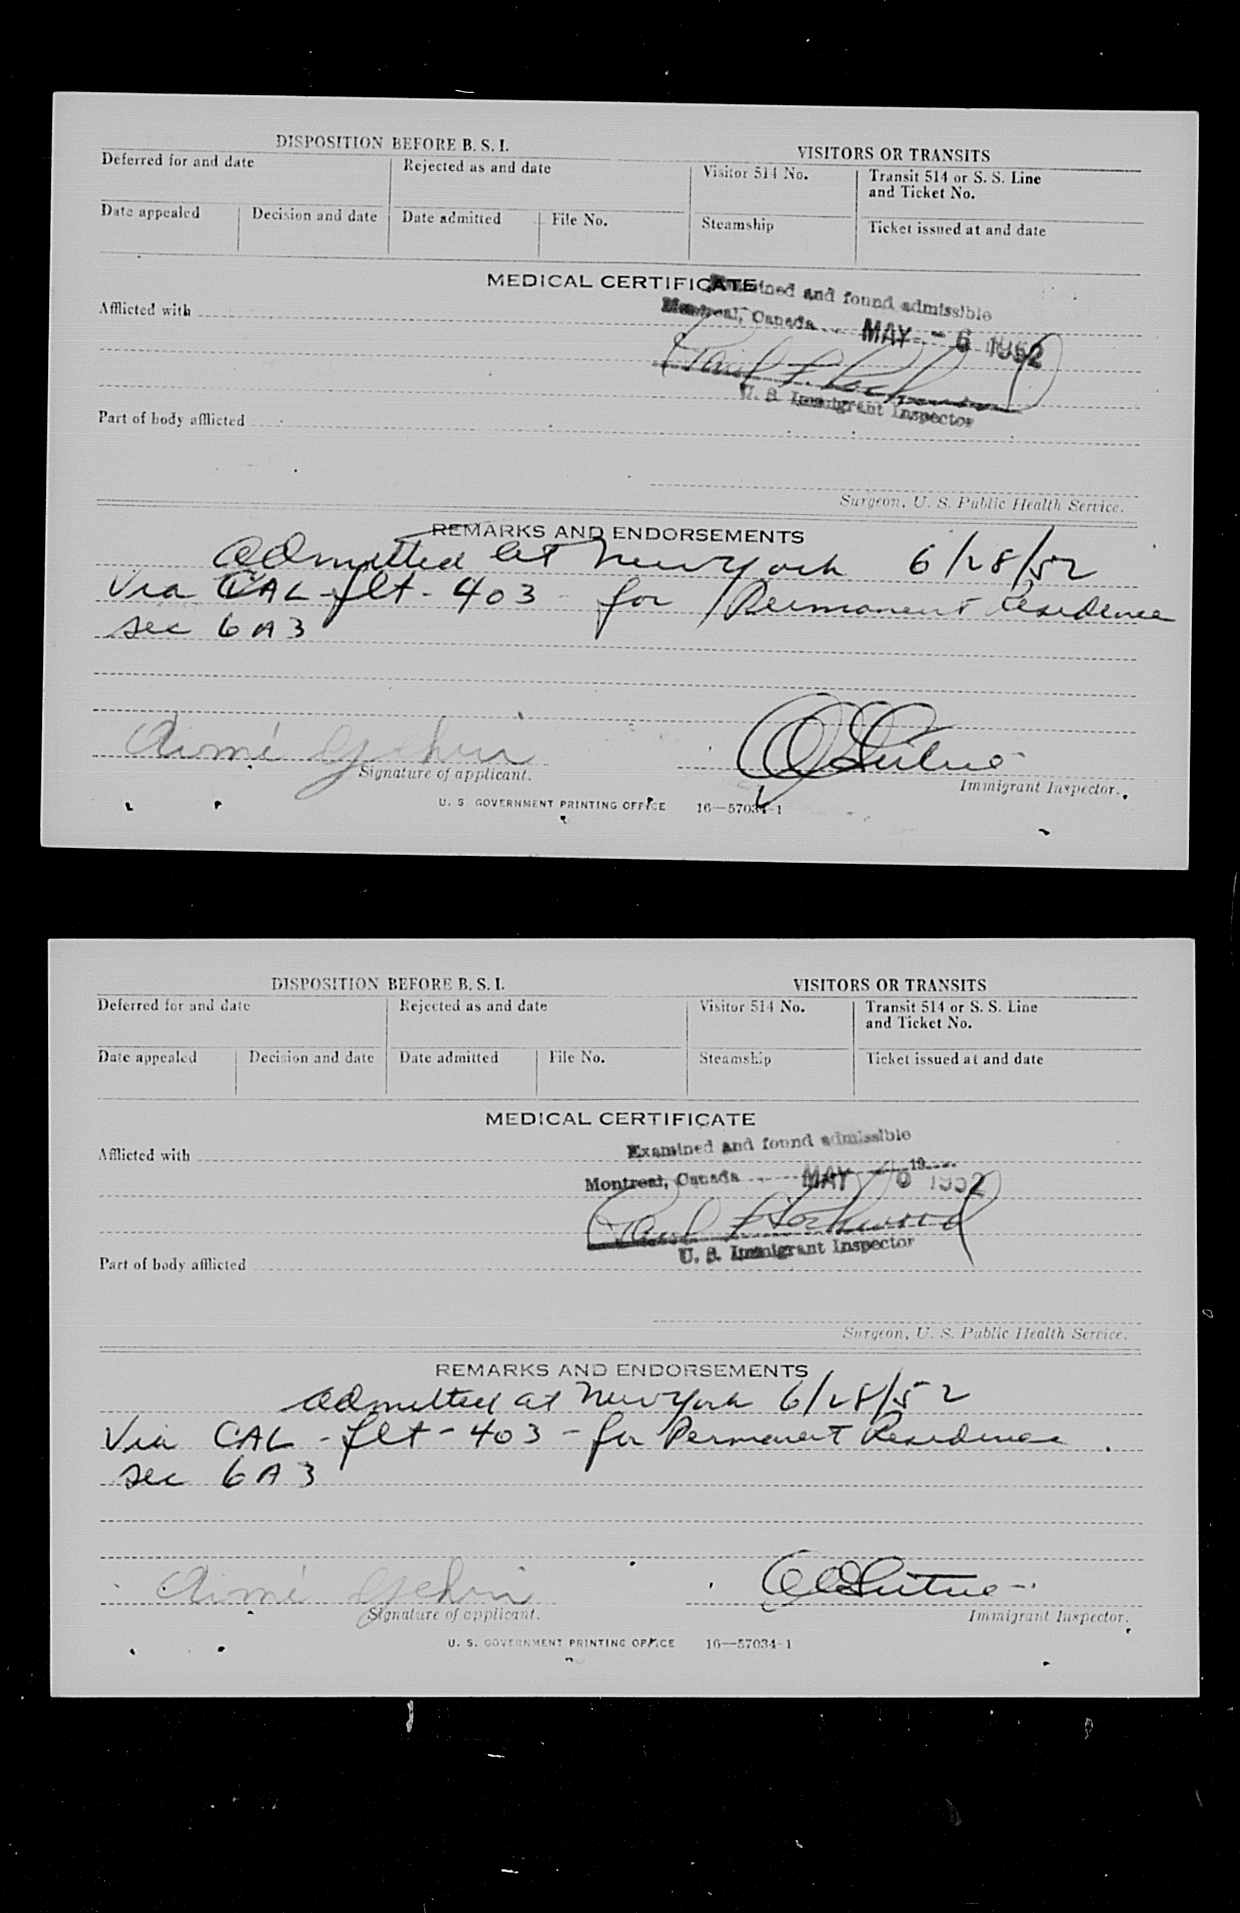 DISPOSITION BEFORE B. S. I.
VISITORS OR TRANSITS
Deferred for and date
Rejected as and date
Visitor 514 No.
Transit 514 or S. S. Line
and Ticket No.
Date appealed
Decision and date
Date admitted
File No.
Steamship
Ticket issued at and date
MEDICAL CERTIFICATE
Examined and found admissible
Afflicted with
Montreal, Canada MAY - 6 1952
Paul
U. S. Immigrant Inspector
Part of body afflicted
Surgeon, U. S. Public Health Service.
REMARKS AND ENDORSEMENTS
admitted at New York 6/28/52
Via CAL-flt-403 - for Permanent Residence
sec 6A3
Aimé
Signature of applicant.
Immigrant Inspector.
U. S. GOVERNMENT PRINTING OFFICE 16—57034-1
DISPOSITION BEFORE B. S. I.
VISITORS OR TRANSITS
Deferred for and date
Rejected as and date
Visitor 514 No.
Transit 514 or S. S. Line
and Ticket No.
Date appealed
Decision and date
Date admitted
File No.
Steamship
Ticket issued at and date
MEDICAL CERTIFICATE
Examined and found admissible
Afflicted with
Montreal, Canada MAY 6 1952 19
Paul
U. S. Immigrant Inspector
Part of body afflicted
Surgeon, U. S. Public Health Service.
REMARKS AND ENDORSEMENTS
admitted at New York 6/28/52
Via CAL - flt - 403 - for Permanent Residence.
sec 6A3
Aimé
Signature of applicant.
Immigrant Inspector.
U. S. GOVERNMENT PRINTING OFFICE 16—57034-1